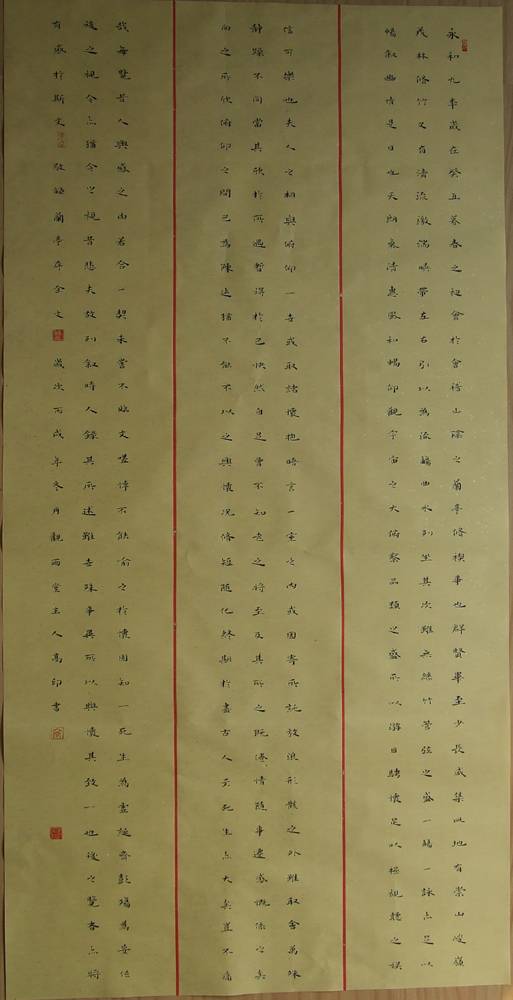 永和九年歲在癸丑暮春之初會於會稽山陰之蘭亭修禊事也群賢畢至少長咸集此地有崇山峻嶺
茂林修竹又有清流激湍映帶左右引以為流觴曲水列坐其次雖無絲竹管弦之盛一觴一詠亦足以
暢敘幽情是日也天朗氣清惠風和暢仰觀宇宙之大俯察品類之盛所以游目騁懷足以極視聽之娛
信可樂也夫人之相與俯仰一世或取諸懷抱晤言一室之內或因寄所託放浪形骸之外雖取舍萬殊
靜躁不同當其欣於所遇暫得於己快然自足曾不知老之將至及其所之既倦情隨事遷感慨係之矣
向之所欣俯仰之間已為陳迹猶不能不以之興懷況修短隨化終期於盡古人云死生亦大矣豈不痛
哉每覽昔人興感之由若合一契未嘗不臨文嗟悼不能喻之於懷固知一死生為虛誕齊彭殤為妄作
後之視今亦猶今之視昔悲夫故列敘時人錄其所述雖世殊事異所以興懷其致一也後之覽者亦將
有感於斯文敬錄蘭亭序全文歲次丙戌年冬月觀雨堂主人高印書